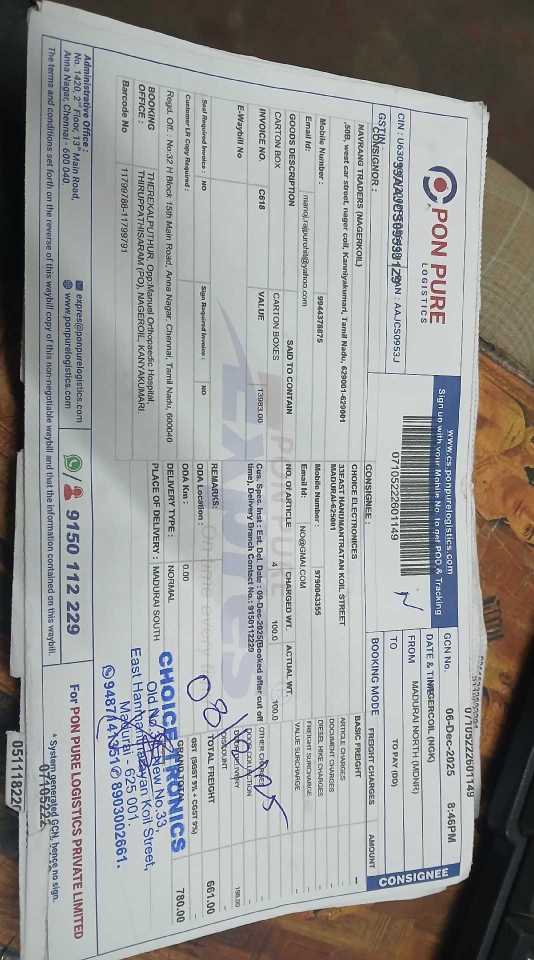 PON PURE
LOGISTICS
www.cs.ponpurelogistics.com
Sign up with your Mobile No. to get POD & Tracking
CONSIGNEE
07105222601149
GCN No. 07105222601149
DATE & TIME 06-Dec-2025 8:46PM
FROM NAGERCOIL (NGK)
TO MADURAI NORTH (MDNR)
BOOKING MODE TO PAY (DD)
CONSIGNOR :
NAVRANG TRADERS (NAGERKOIL)
,50B, west car street, nager coil, Kanniyakumari, Tamil Nadu, 629001-629001
Mobile Number : 9944378875
Email Id:
CONSIGNEE :
CHOICE ELECTRONICS
33EAST HANUMANTRATAN KOIL STREET
MADURAI-625001
Mobile Number : 9790043355
Email Id: NO@GMAI.COM
GOODS DESCRIPTION SAID TO CONTAIN NO. OF ARTICLE CHARGED WT. ACTUAL WT.
CARTON BOX CARTON BOXES 4 100.0 100.0
INVOICE NO. C618 VALUE 13983.00
E-Waybill No
Cus. Spec. Inst : Est. Del. Date : 09-Dec-2025(Booked after cut off
time), Delivery Branch Contact No.: 9150112229
REMARKS:
Seal Required Invoice : NO Sign Required Invoice : NO
Customer LR Copy Required :
ODA Location :
ODA Km : 0.00
Regd. Off. : No:32 H Block, 15th Main Road, Anna Nagar, Chennai, Tamil Nadu, 600040
DELIVERY TYPE : NORMAL
BOOKING OFFICE : THEREKALPUTHUR, Opp:Manual Ortopaedic Hospital,
THIRUPPATHISARAM (PO), NAGEROIL, KANYAKUMARI.
PLACE OF DELIVERY : MADURAI SOUTH
Barcode No 11799788-11799791
FREIGHT CHARGES AMOUNT
BASIC FREIGHT
ARTICLE CHARGES
DOCUMENT CHARGES
DIESEL HIKE CHARGES
FREIGHT SURCHARGE
VALUE SURCHARGE
TOTAL FREIGHT 661.00
GST (SGST 9% + CGST 9%)
780.00
CHOICE TRONICS
New No.33,
Koil Street,
Madurai - 625 001.
8903002661.
Administrative Office :
No. 1420, 2nd Floor, 13th Main Road,
Anna Nagar, Chennai - 600 040.
expres@ponpurelogistics.com
www.ponpurelogistics.com
9150 112 229
For PON PURE LOGISTICS PRIVATE LIMITED
* System generated GCN, hence no sign.
The terms and conditions set forth on the reverse of this waybill copy of this non-negotiable waybill and that the information contained on this waybill.